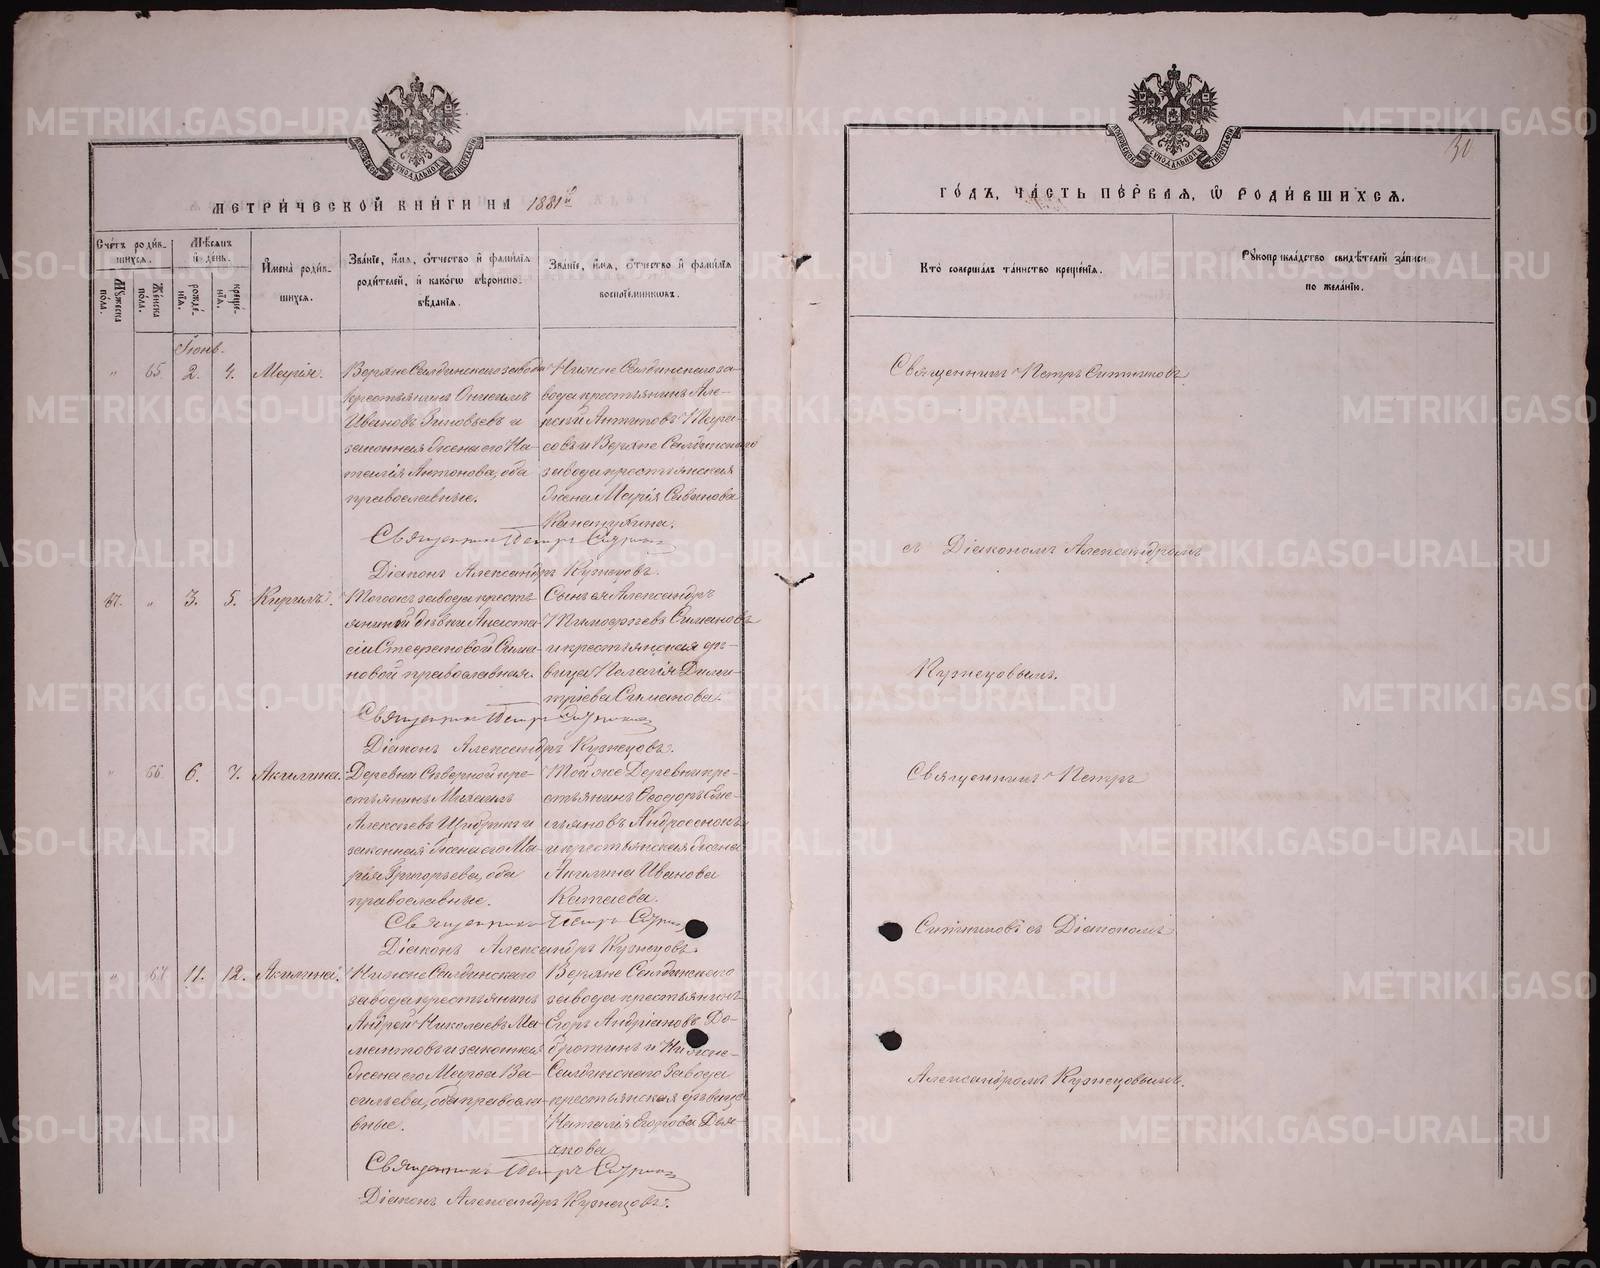 МЕТРИЧЕСКОЙ КНИГИ НА 1881й
Счетъ родив-
шихся.
Мужеска пола.
Женска пола.
Мѣсяцъ
и день.
рожде-
нія.
креще-
нія.
Имена родив-
шихся.
Званіе, имя, отчество и фамилія
родителей, и какого вѣроиспо-
вѣданія.
Званіе, имя, отчество и фамилія
воспріемниковъ.
Іюнь.
" 65 2. 4. Марія.
Верхне Салдинскаго завода
крестьянинъ Онисимъ
Ивановъ Зиновьевъ и
законная жена его На-
талія Антонова, оба
православные.
Нижне Салдинскаго за-
вода крестьянинъ Але-
ксій Антиповъ
и Верхне Салдинскаго
завода крестьянская
жена Марія Савинова
Священникъ Петръ
Діаконъ Александръ Кузнецовъ.
67. " 3. 5. Кирилъ.
Тогоже завода кресть-
янской дѣвки Анаста-
сіи Стефановой Сима-
новой православная.
Сынъ ея Александръ
Тимофеевъ Симановъ
и крестьянская дѣ-
вица Пелагія Дими-
тріева Симанова.
Священникъ Петръ
Діаконъ Александръ Кузнецовъ.
" 66 6. 7. Акилина.
Деревни Сѣверной кре-
стьянинъ Михаилъ
Алексѣевъ и
законная жена его Ма-
рія Григорьева, оба
православные.
Той же Деревни кре-
стьянинъ Ѳеодоръ Еме-
льяновъ
и крестьянская жена
Акилина Иванова
Катаева.
Священникъ Петръ
Діаконъ Александръ Кузнецовъ.
" 67 11. 12. Акилина.
Нижне Салдинскаго
завода крестьянинъ
Андрей Николаевъ Ма-
мантовъ и законная
жена его Марѳа Ва-
сильева, оба православ-
ные.
Верхне Салдинскаго
завода крестьянинъ
Егоръ Андріановъ До-
бротинъ и Нижне-
Салдинскаго завода
крестьянская дѣвица
Наталія Егорова
Священникъ Петръ
Діаконъ Александръ Кузнецовъ.
30
ГОДЪ, ЧАСТЬ ПЕРВАЯ, Ѡ РОДИВШИХСЯ.
Кто совершалъ таинство крещенія.
Рукоприкладство свидѣтелей записи
по желанію.
Священникъ Петръ Ситниковъ
съ Діакономъ Александромъ
Кузнецовымъ.
Священникъ Петръ
Ситниковъ съ Діакономъ
Александромъ Кузнецовымъ.
METRIKI.GASO-URAL.RU